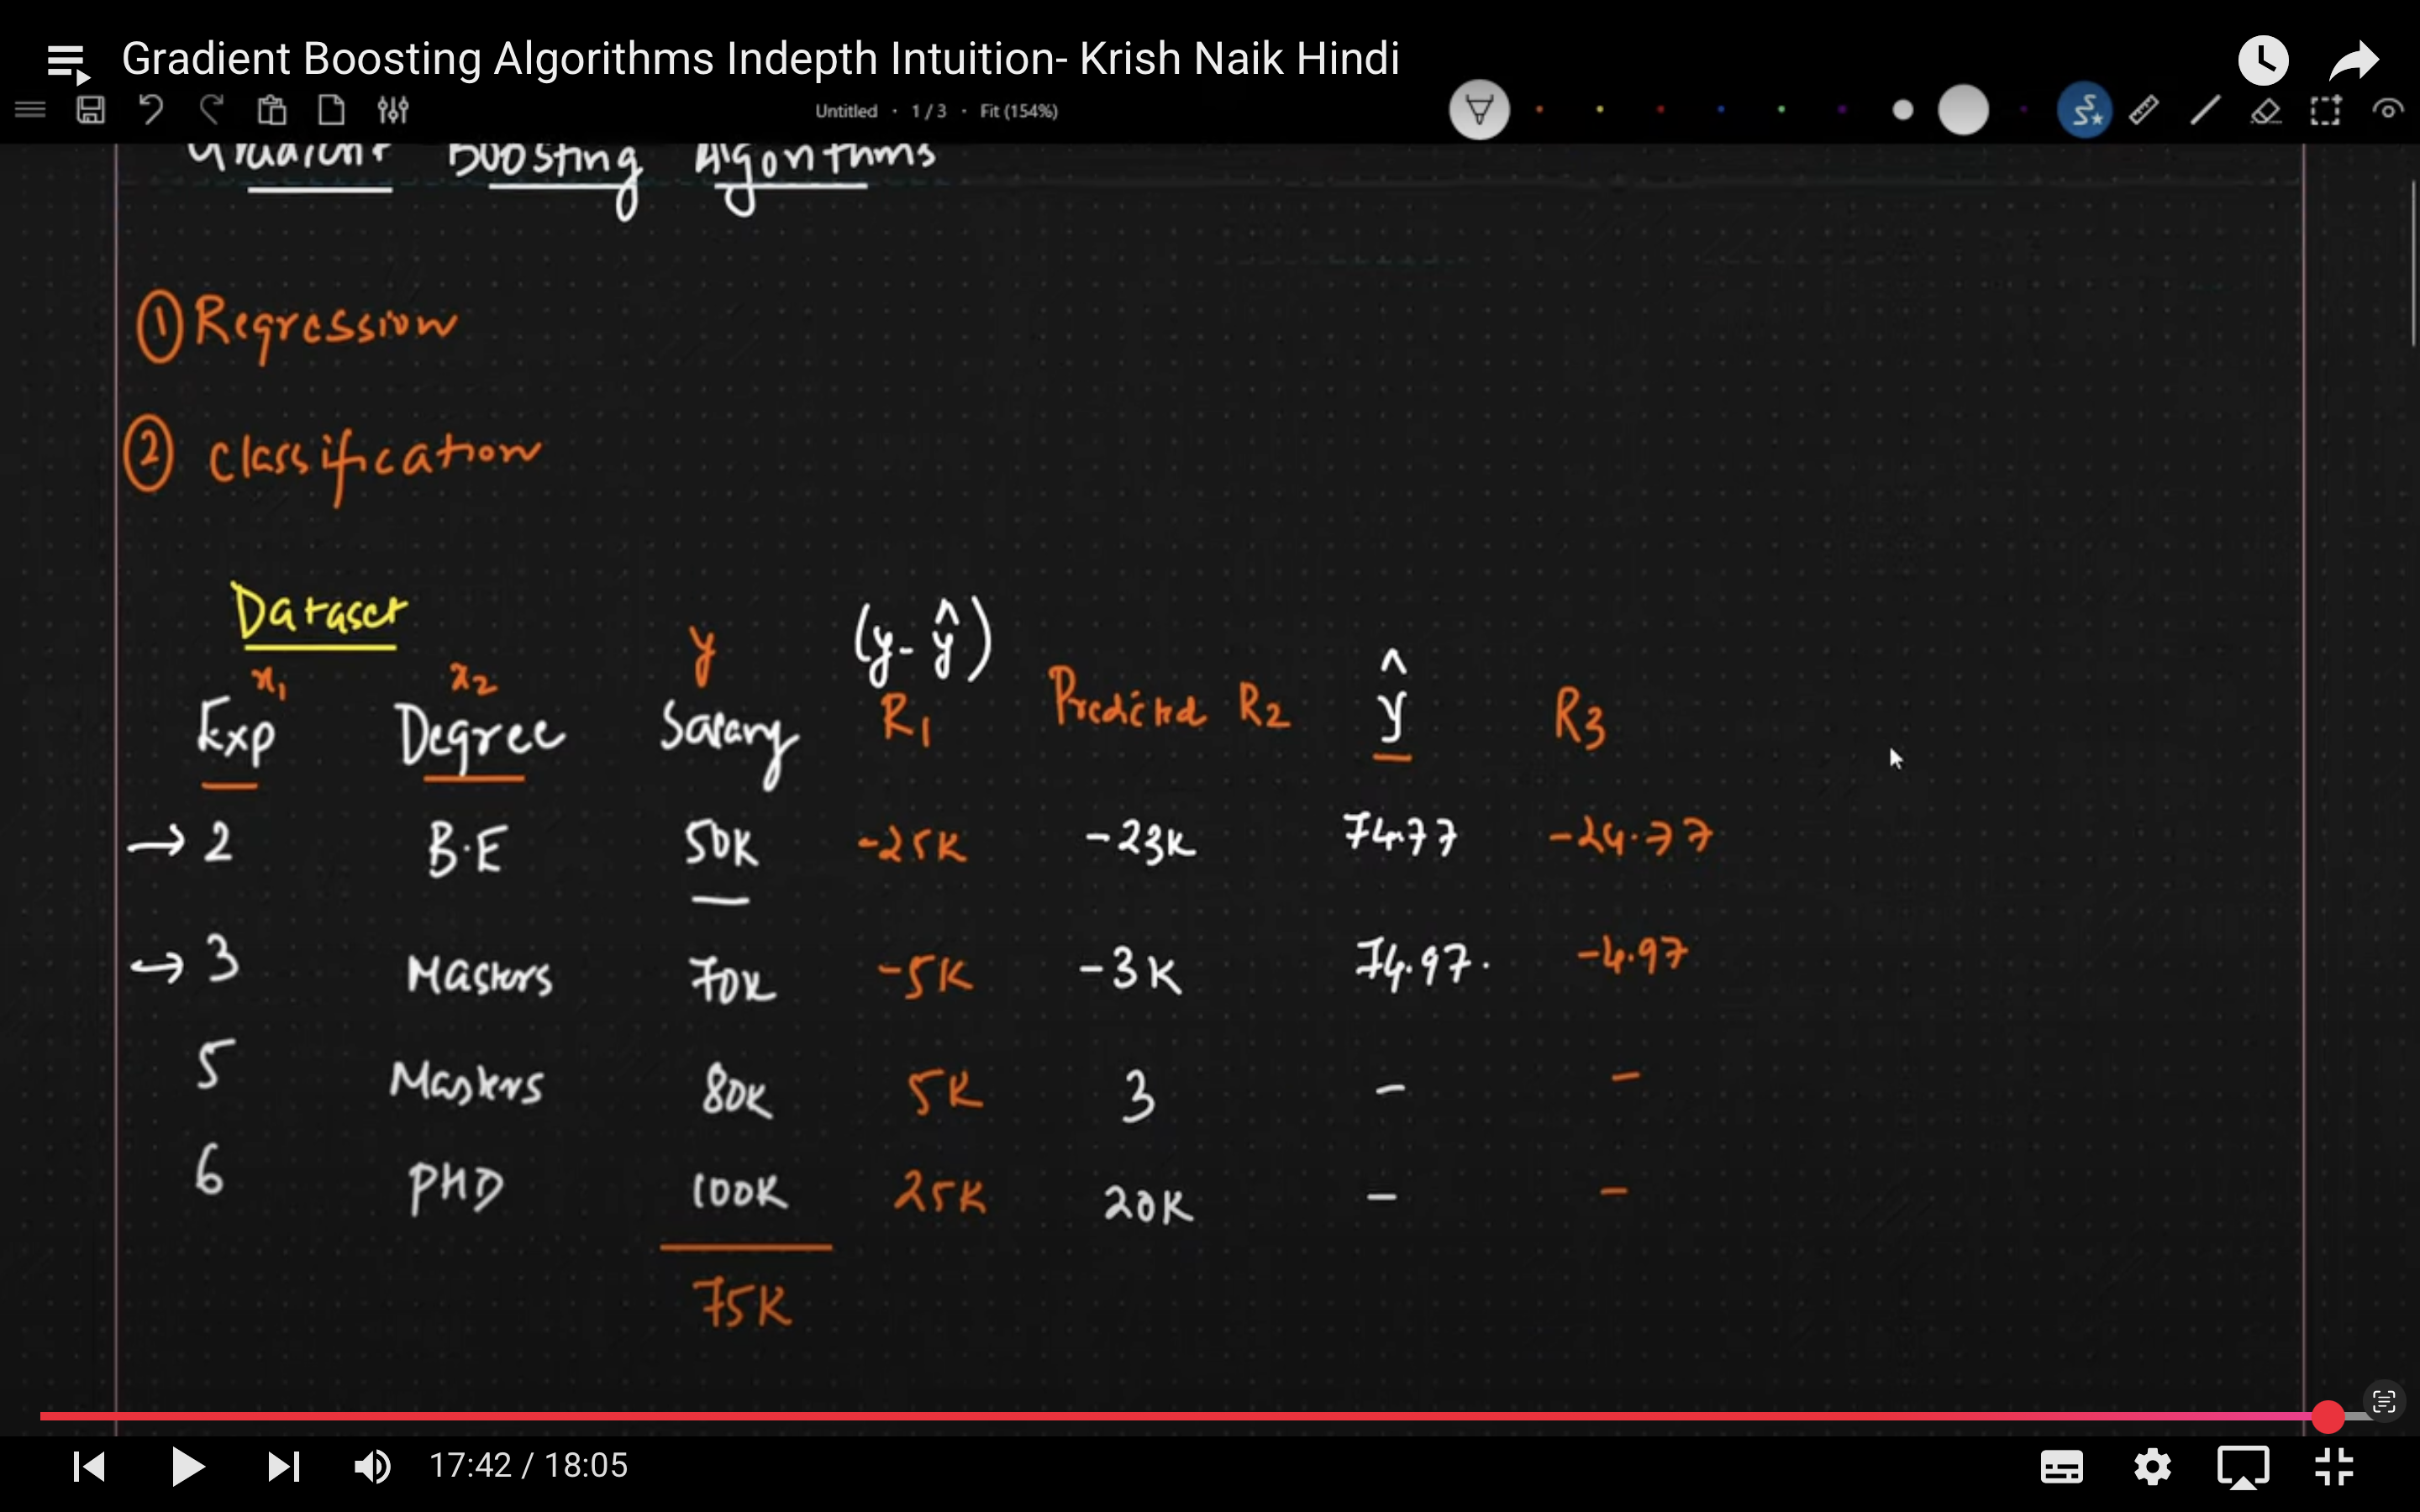 Gradient Boosting Algorithms Indepth Intuition- Krish Naik Hindi
Untitled · 1 / 3 · Fit (154%)
Gradient Boosting Algorithms
① Regression
② Classification
Dataset
x1 x2 y (y-ŷ)
Exp Degree Salary R1 Predicted R2 ŷ R3
→ 2 B.E 50K -25K -23K 74.77 -24.77
→ 3 Masters 70K -5K -3K 74.97. -4.97
5 Masters 80K 5K 3 - -
6 PHD 100K 25K 20K - -
75K
17:42 / 18:05